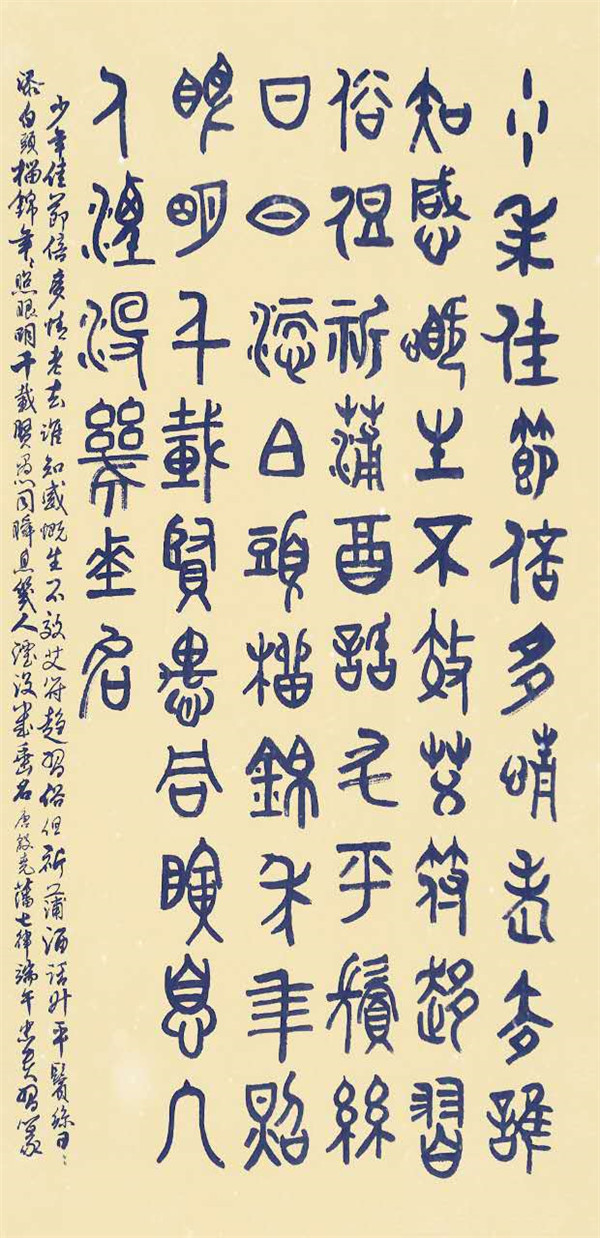 少年佳節倍多情老去誰
知感慨生不效艾符趨習
俗但祈蒲酒話升平鬢絲
日日添白頭榴錦年年照
眼明千載賢愚同瞬息几
人湮沒幾垂名
少年佳節倍多情老去誰知感慨生不效艾符趨習俗但祈蒲酒話升平鬢絲日〻
添白頭榴錦年〻照眼明千載賢愚同瞬息幾人湮没幾垂名唐殷堯藩七律端午習篆